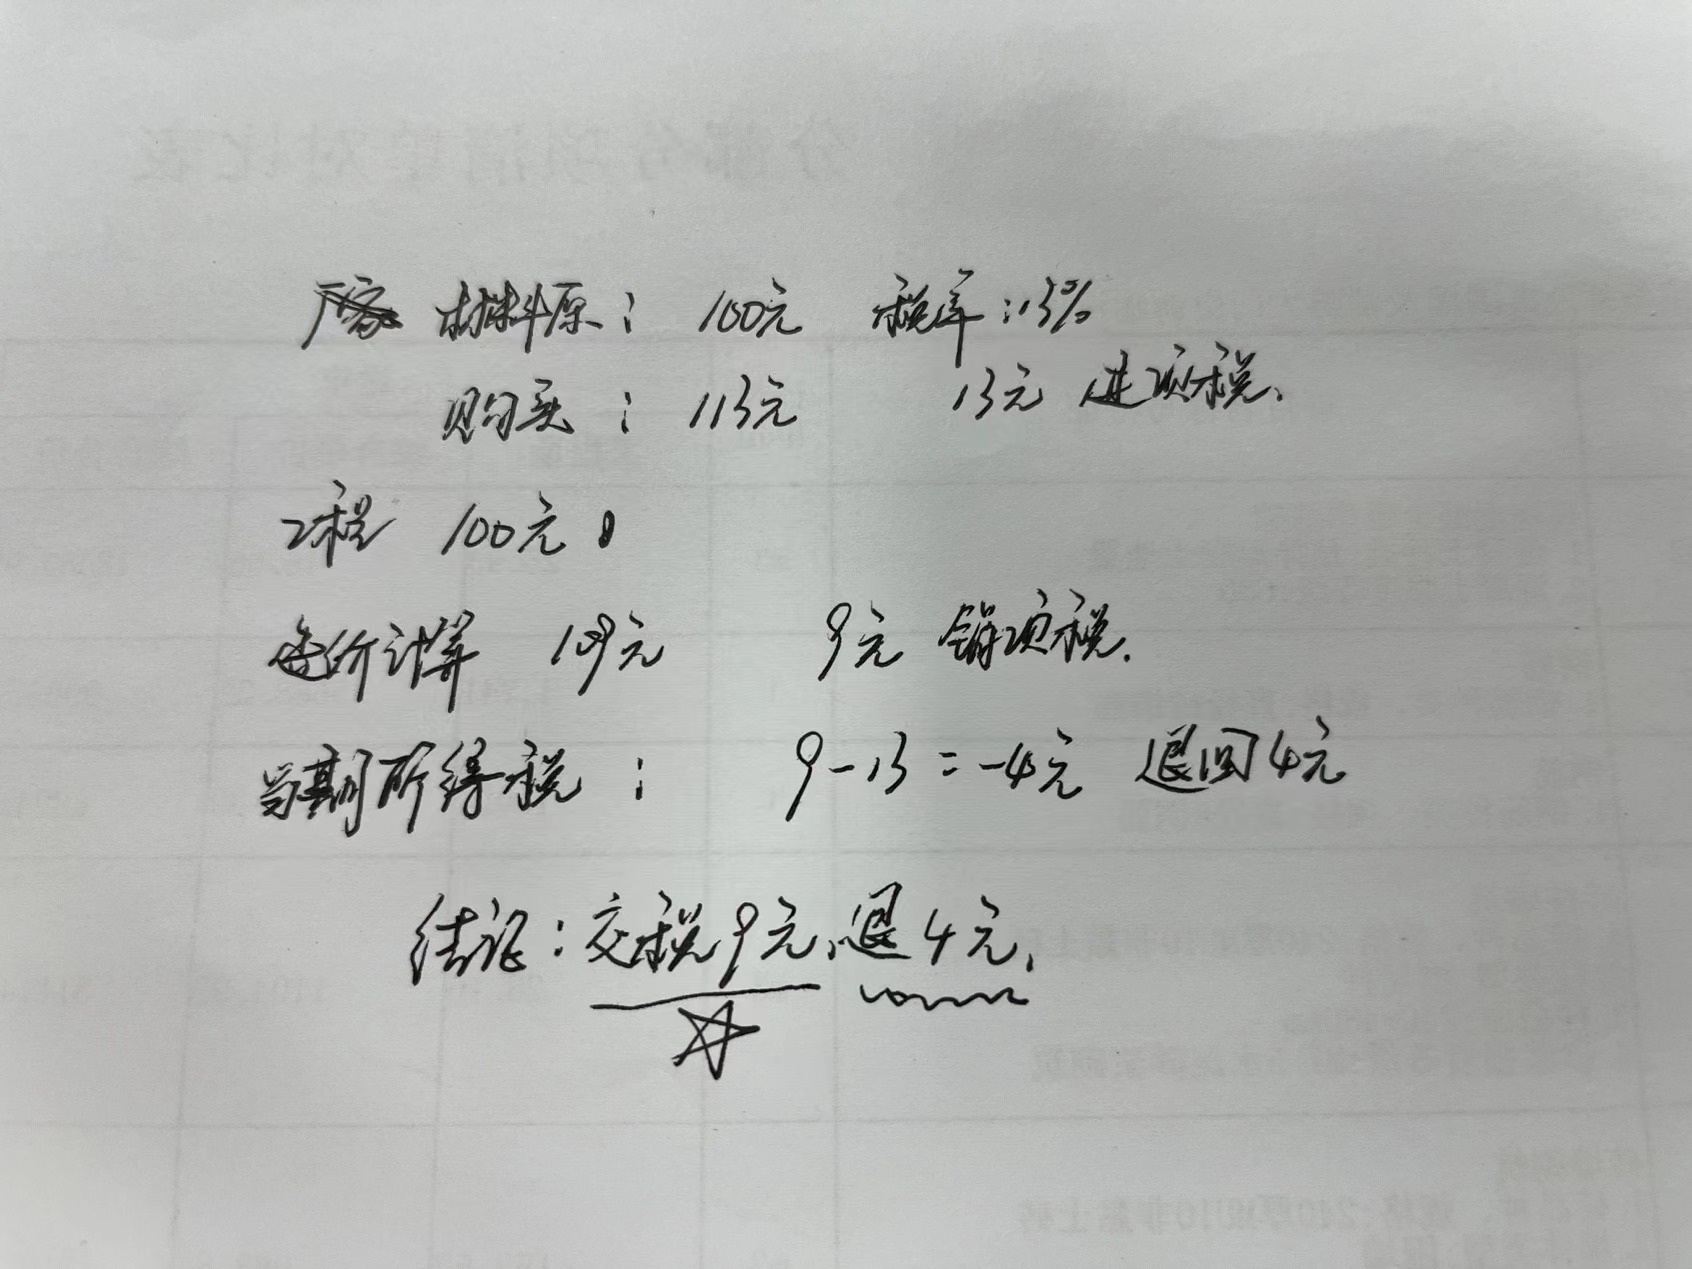 材料原: 100元 税率:13%
购买: 113元 13元 进项税.
工程 100元
造价计算 109元 9元 销项税.
当期所得税: 9-13=-4元 退回4元
结论:交税9元,退4元,